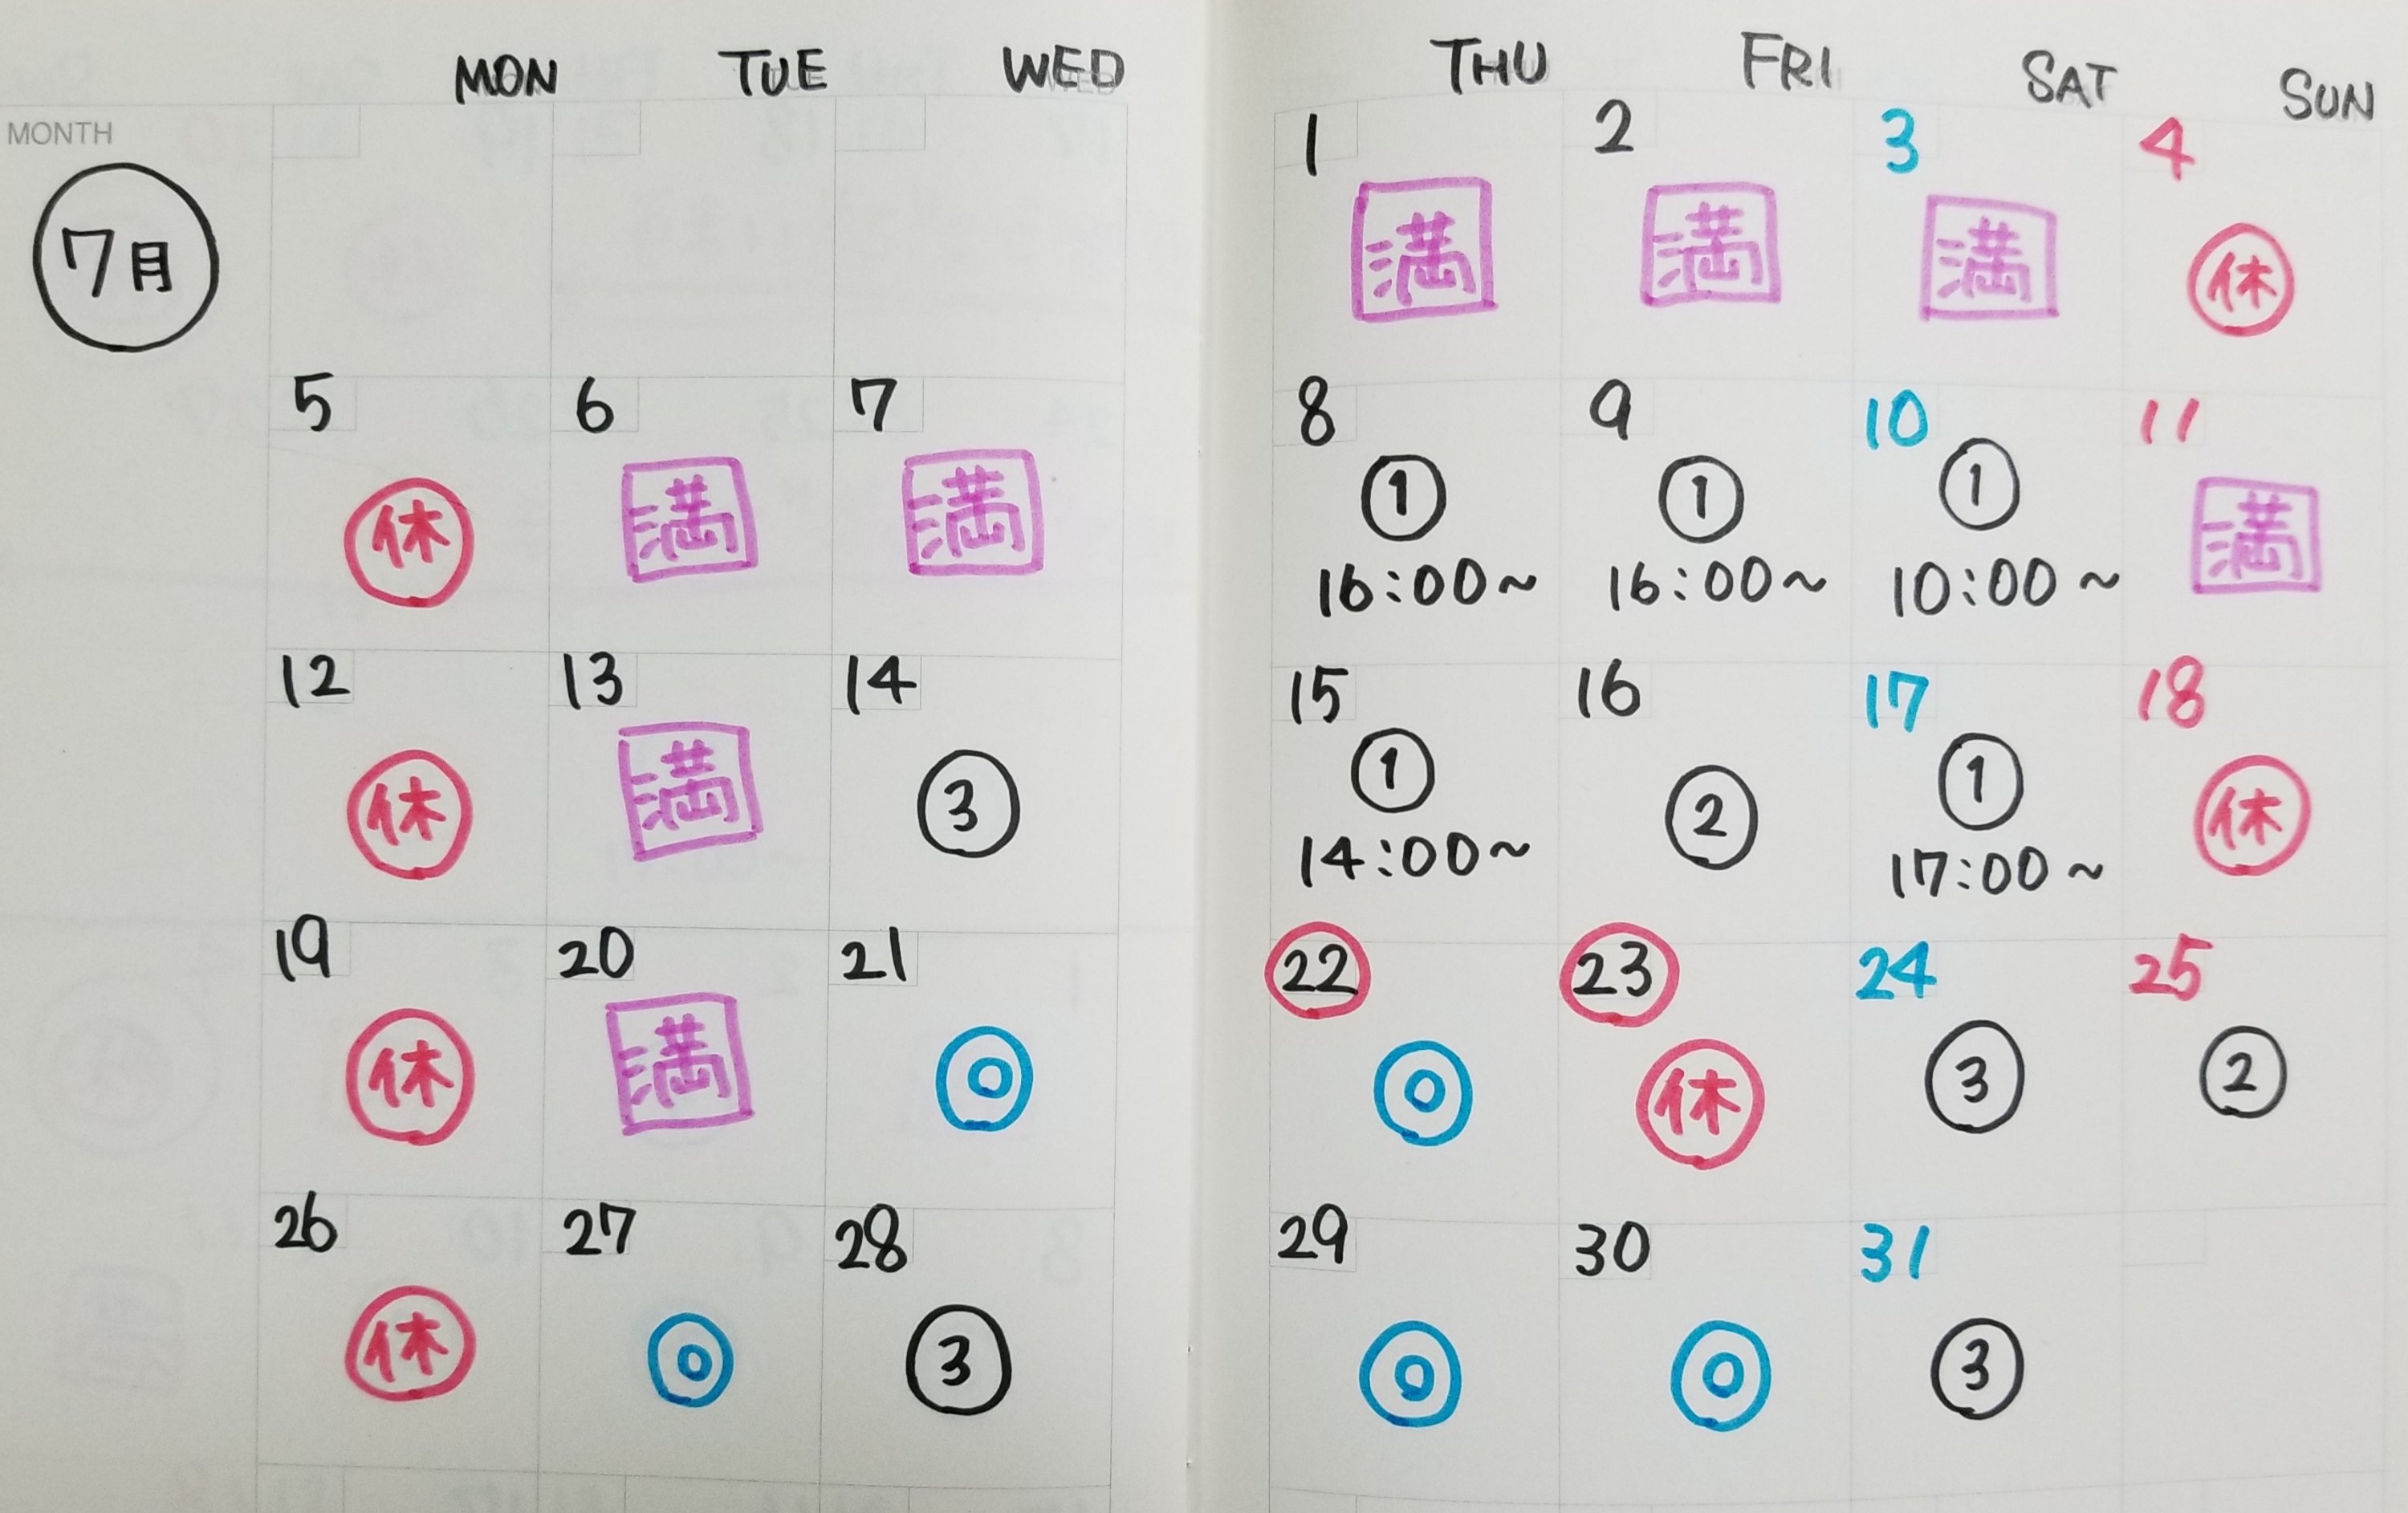 MON TUE WED THU FRI SAT SUN
MONTH
7月
1 2 3 4
満 満 満 休
5 6 7 8 9 10 11
休 満 満 ① ① ① 満
16:00~ 16:00~ 10:00~
12 13 14 15 16 17 18
休 満 ③ ① ② ① 休
14:00~ 17:00~
19 20 21 22 23 24 25
休 満 ◎ ◎ 休 ③ ②
26 27 28 29 30 31
休 ◎ ③ ◎ ◎ ③